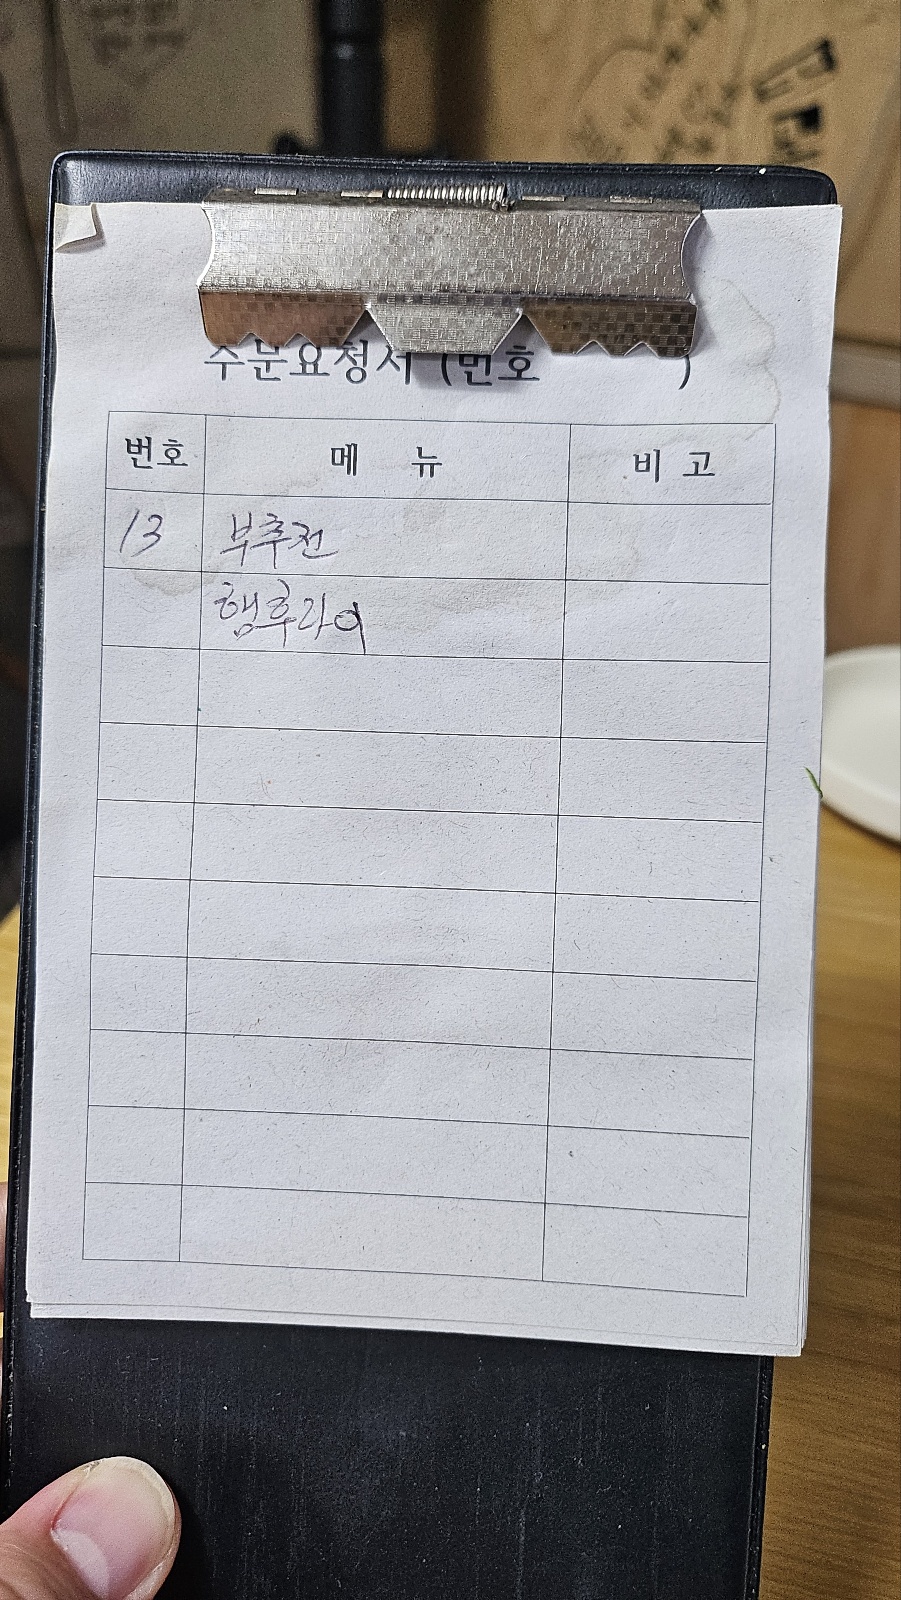 주문요청서 (번호 )
번호 메 뉴 비 고
13 부추전
햄후라이